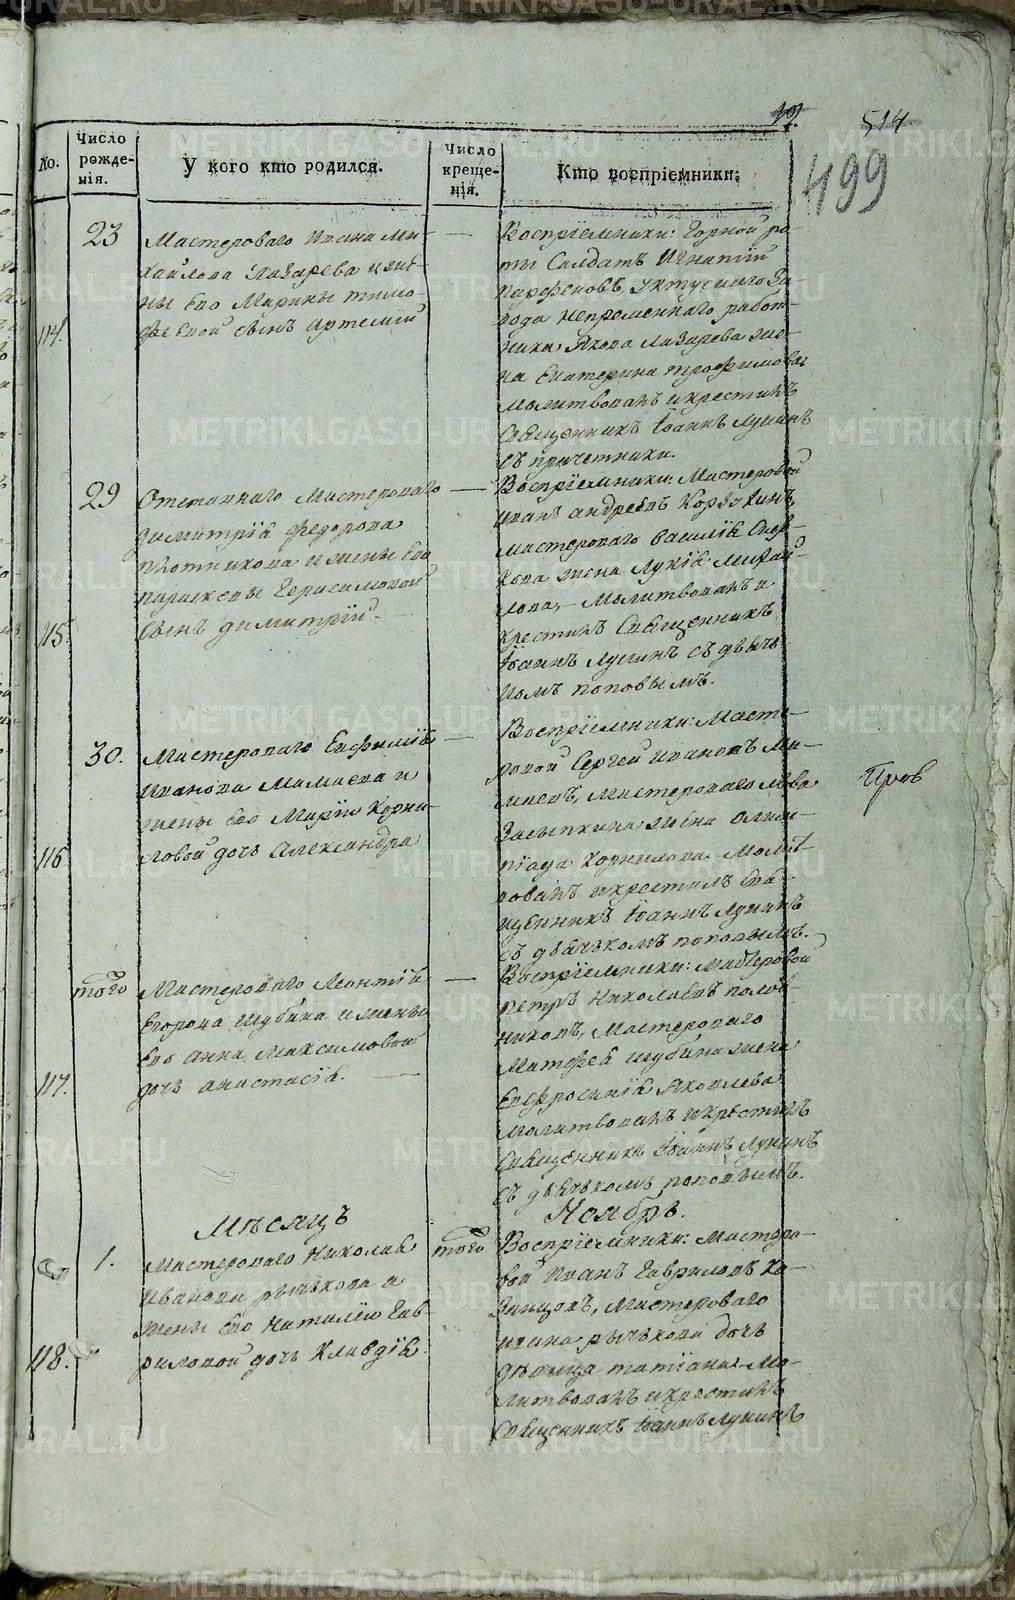 METRIKI.GASO-URAL.RU
19.
514
499
№.
Число рожденія.
У кого кто родился.
Число крещенія.
Кто воспріемники:
114.
23
Мастероваго Ивана Ми-
хайлова Лазарева и же-
ны Его Марины Тимо-
феевой сынъ Артемий
Воспріемники: Горной ро-
ты Салдатъ Игнатій
Парфеновъ, Уктускаго За-
вода непременнаго работ-
ника Якова Лазарева же-
на Екатерина Трофимова
Молитвовалъ и крестилъ
Священникъ Іоаннъ Лукинъ
съ причетники.
115.
29
Отставнаго Мастероваго
Димитрія Федорова
Плотникова и жены Его
Параскевы Герасимовой
Сынъ Димитрій.
Воспріемники: Мастеровой
Иванъ Андреевъ
Мастероваго Василія
жена Лукія Михай-
лова, Молитвовалъ и
крестилъ Священникъ
Іоаннъ Лукинъ съ дьяч-
комъ Поповымъ.
116
30.
Мастероваго Евфимія
Иванова Мамаева и
жены Его Маріи Корни-
ловой дочь Александра
Воспріемники: Масте-
ровой Сергей Ивановъ
Мастероваго Льва
Засыпкина жена Олим-
піада Корнилова Молит-
вовалъ и крестилъ Свя-
щенникъ Іоаннъ Лукинъ
съ дьячкомъ Поповымъ.
Пров
117.
того
Мастероваго Леонтія
Егорова Шубина и жены
Его Анна Максимовой
дочь Анастасія.
Воспріемники: Мастеровой
Петръ Николаевъ Полов-
никовъ, Мастероваго
Матфея Шубина жена
Евфросинія Яковлева
Молитвовалъ и крестилъ
Священникъ Іоаннъ Лукинъ
съ дьячкомъ Поповымъ.
Мѣсяцъ
Ноябрь.
118.
1.
Мастероваго Николая
Иванова Рычкова и
жены Его Наталіи Гав-
риловой дочь Клавдія.
того
Воспріемники: Мастеро-
вой Иванъ Гавриловъ Ка-
занцовъ, Мастероваго
Ивана Рычкова дочь
девица Татіана Мо-
литвовалъ и крестилъ
Священникъ Іоаннъ Лукинъ